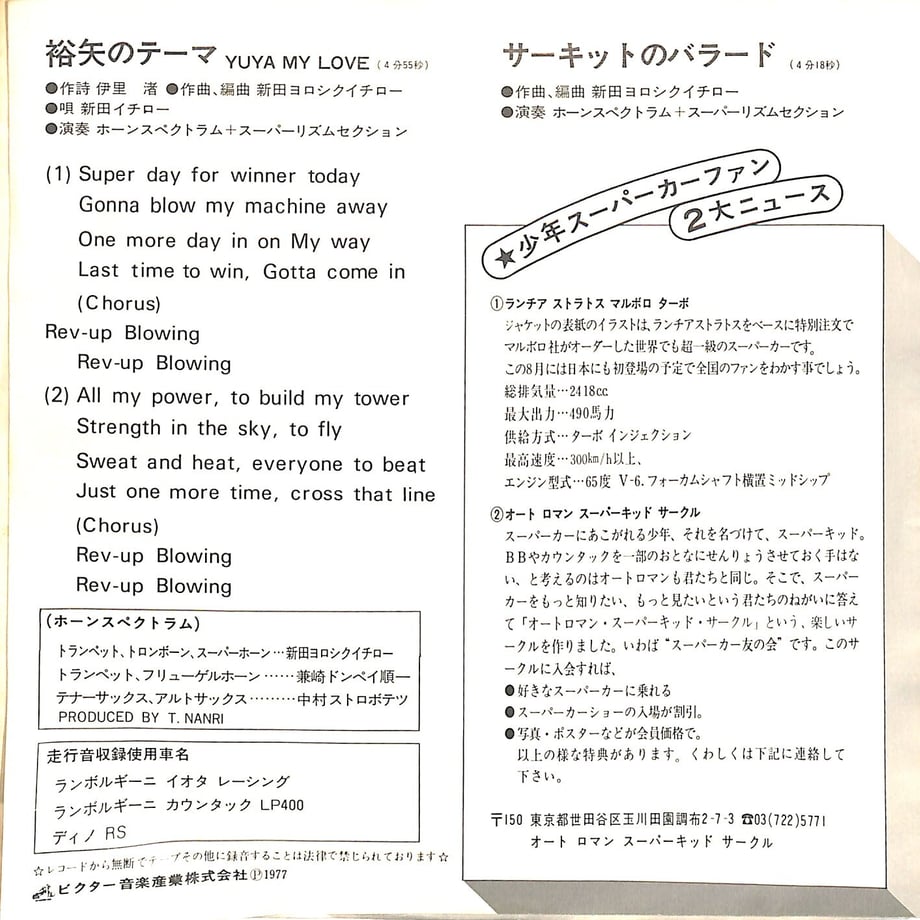 裕矢のテーマ YUYA MY LOVE (4分55秒)
●作詩 伊里 渚 ●作曲、編曲 新田ヨロシクイチロー
●唄 新田イチロー
●演奏 ホーンスペクトラム+スーパーリズムセクション
(1) Super day for winner today
Gonna blow my machine away
One more day in on My way
Last time to win, Gotta come in
(Chorus)
Rev-up Blowing
Rev-up Blowing
(2) All my power, to build my tower
Strength in the sky, to fly
Sweat and heat, everyone to beat
Just one more time, cross that line
(Chorus)
Rev-up Blowing
Rev-up Blowing
(ホーンスペクトラム)
トランペット、トロンボーン、スーパーホーン…新田ヨロシクイチロー
トランペット、フリューゲルホーン……兼崎ドンペイ順一
テナーサックス、アルトサックス………中村ストロボテツ
PRODUCED BY T. NANRI
走行音収録使用車名
ランボルギーニ イオタ レーシング
ランボルギーニ カウンタック LP400
ディノ RS
☆レコードから無断でテープその他に録音することは法律で禁じられております☆
ビクター音楽産業株式会社Ⓟ1977
サーキットのバラード (4分18秒)
●作曲、編曲 新田ヨロシクイチロー
●演奏 ホーンスペクトラム+スーパーリズムセクション
★少年スーパーカーファン
2大ニュース
①ランチア ストラトス マルボロ ターボ
ジャケットの表紙のイラストは、ランチアストラトスをベースに特別注文で
マルボロ社がオーダーした世界でも超一級のスーパーカーです。
この8月には日本にも初登場の予定で全国のファンをわかす事でしょう。
総排気量…2418cc
最大出力…490馬力
供給方式…ターボ インジェクション
最高速度…300km/h以上、
エンジン型式…65度 V-6.フォーカムシャフト横置ミッドシップ
②オート ロマン スーパーキッド サークル
スーパーカーにあこがれる少年、それを名づけて、スーパーキッド。
BBやカウンタックを一部のおとなにせんりょうさせておく手はな
い、と考えるのはオートロマンも君たちと同じ。そこで、スーパー
カーをもっと知りたい、もっと見たいという君たちのねがいに答え
て「オートロマン・スーパーキッド・サークル」という、楽しいサ
ークルを作りました。いわば“スーパーカー友の会”です。このサ
ークルに入会すれば、
●好きなスーパーカーに乗れる
●スーパーカーショーの入場が割引。
●写真・ポスターなどが会員価格で。
以上の様な特典があります。くわしくは下記に連絡して
下さい。
〒150 東京都世田谷区玉川田園調布2-7-3 ☎03(722)5771
オート ロマン スーパーキッド サークル